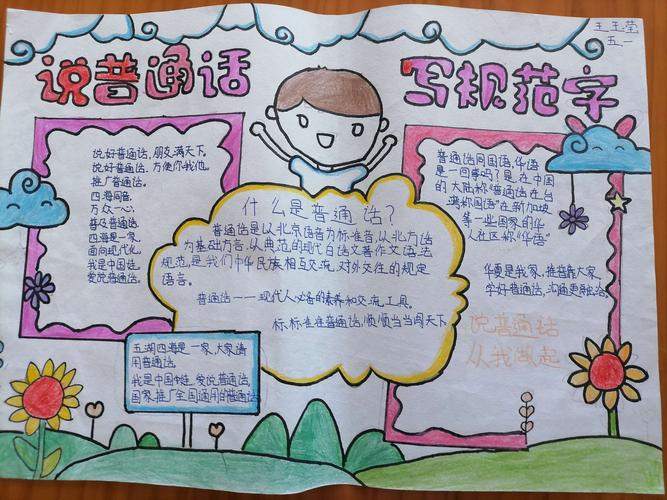 王玉莹
五一
说普通话
写规范字
说好普通话,朋友满天下。
说好普通话,方便你我他。
推广普通话,
四海同音,
万众一心。
普及普通话,
四海是一家。
面向现代化。
我是中国娃,
爱说普通话。
什么是普通话?
普通话是以北京语音为标准音,以北方话
为基础方言,以典范的现代白话文著作文语法
规范,是我们中华民族相互交流,对外交往的规定
语言。
普通话——现代人必备的素养和交流工具。
标标准准普通话,顺顺当当闯天下
普通话同国语,华语
是一回事吗?是,在中国
的大陆称"普通话在台
湾称国语"在新加坡
等一些国家的华
人社区称"华语"
华夏是我家,推普靠大家,
学好普通话,沟通更融洽,
说普通话
从我做起
五湖四海是一家,大家请
用普通话
我是中国娃,爱说普通话,
国家推广全国通用的普通话